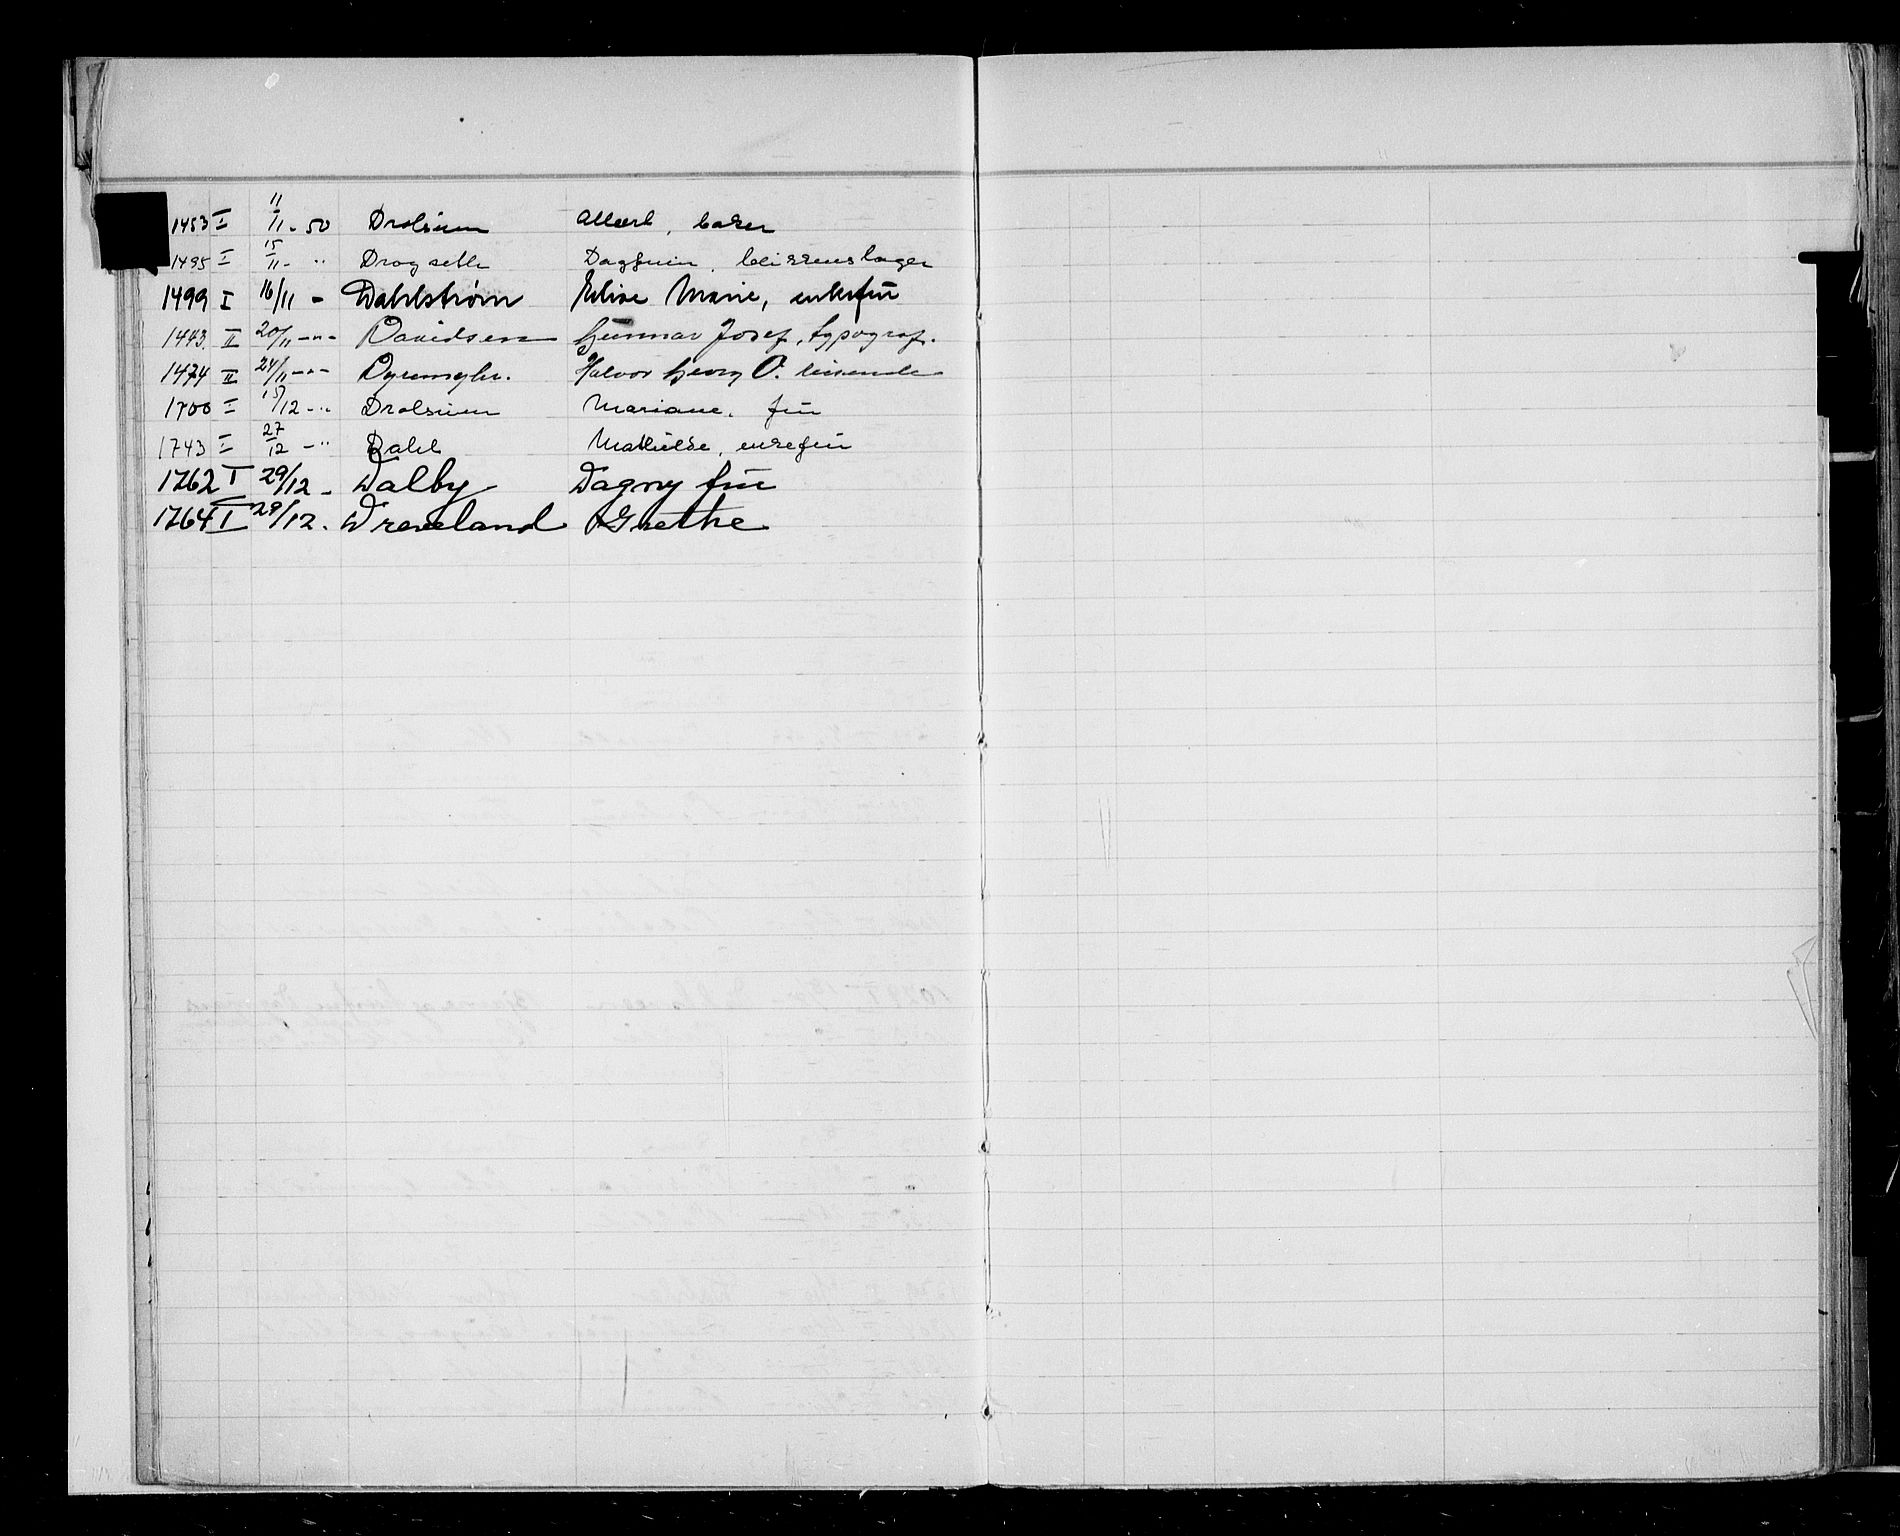 1453 I 11/11 - 50 Drolsum Albert, baker
1495 I 15/11 - " Drogseth Dagfinn, blikkenslager
1499 I 16/11 - Dahlstrøm Elise Marie, enkefru
1443 II 20/11 - " - Davidsen Gunnar Josef, typograf.
1474 II 24/11 - " - Halvor Georg O. reisende
1700 I 15/12 - " Drolsum Mariane, fru
1743 I 27/12 - " Dahl Mathilde, enkefru
1762 I 29/12 - Dalby Dagny fru
1764 I 29/12. Dreveland Grethe